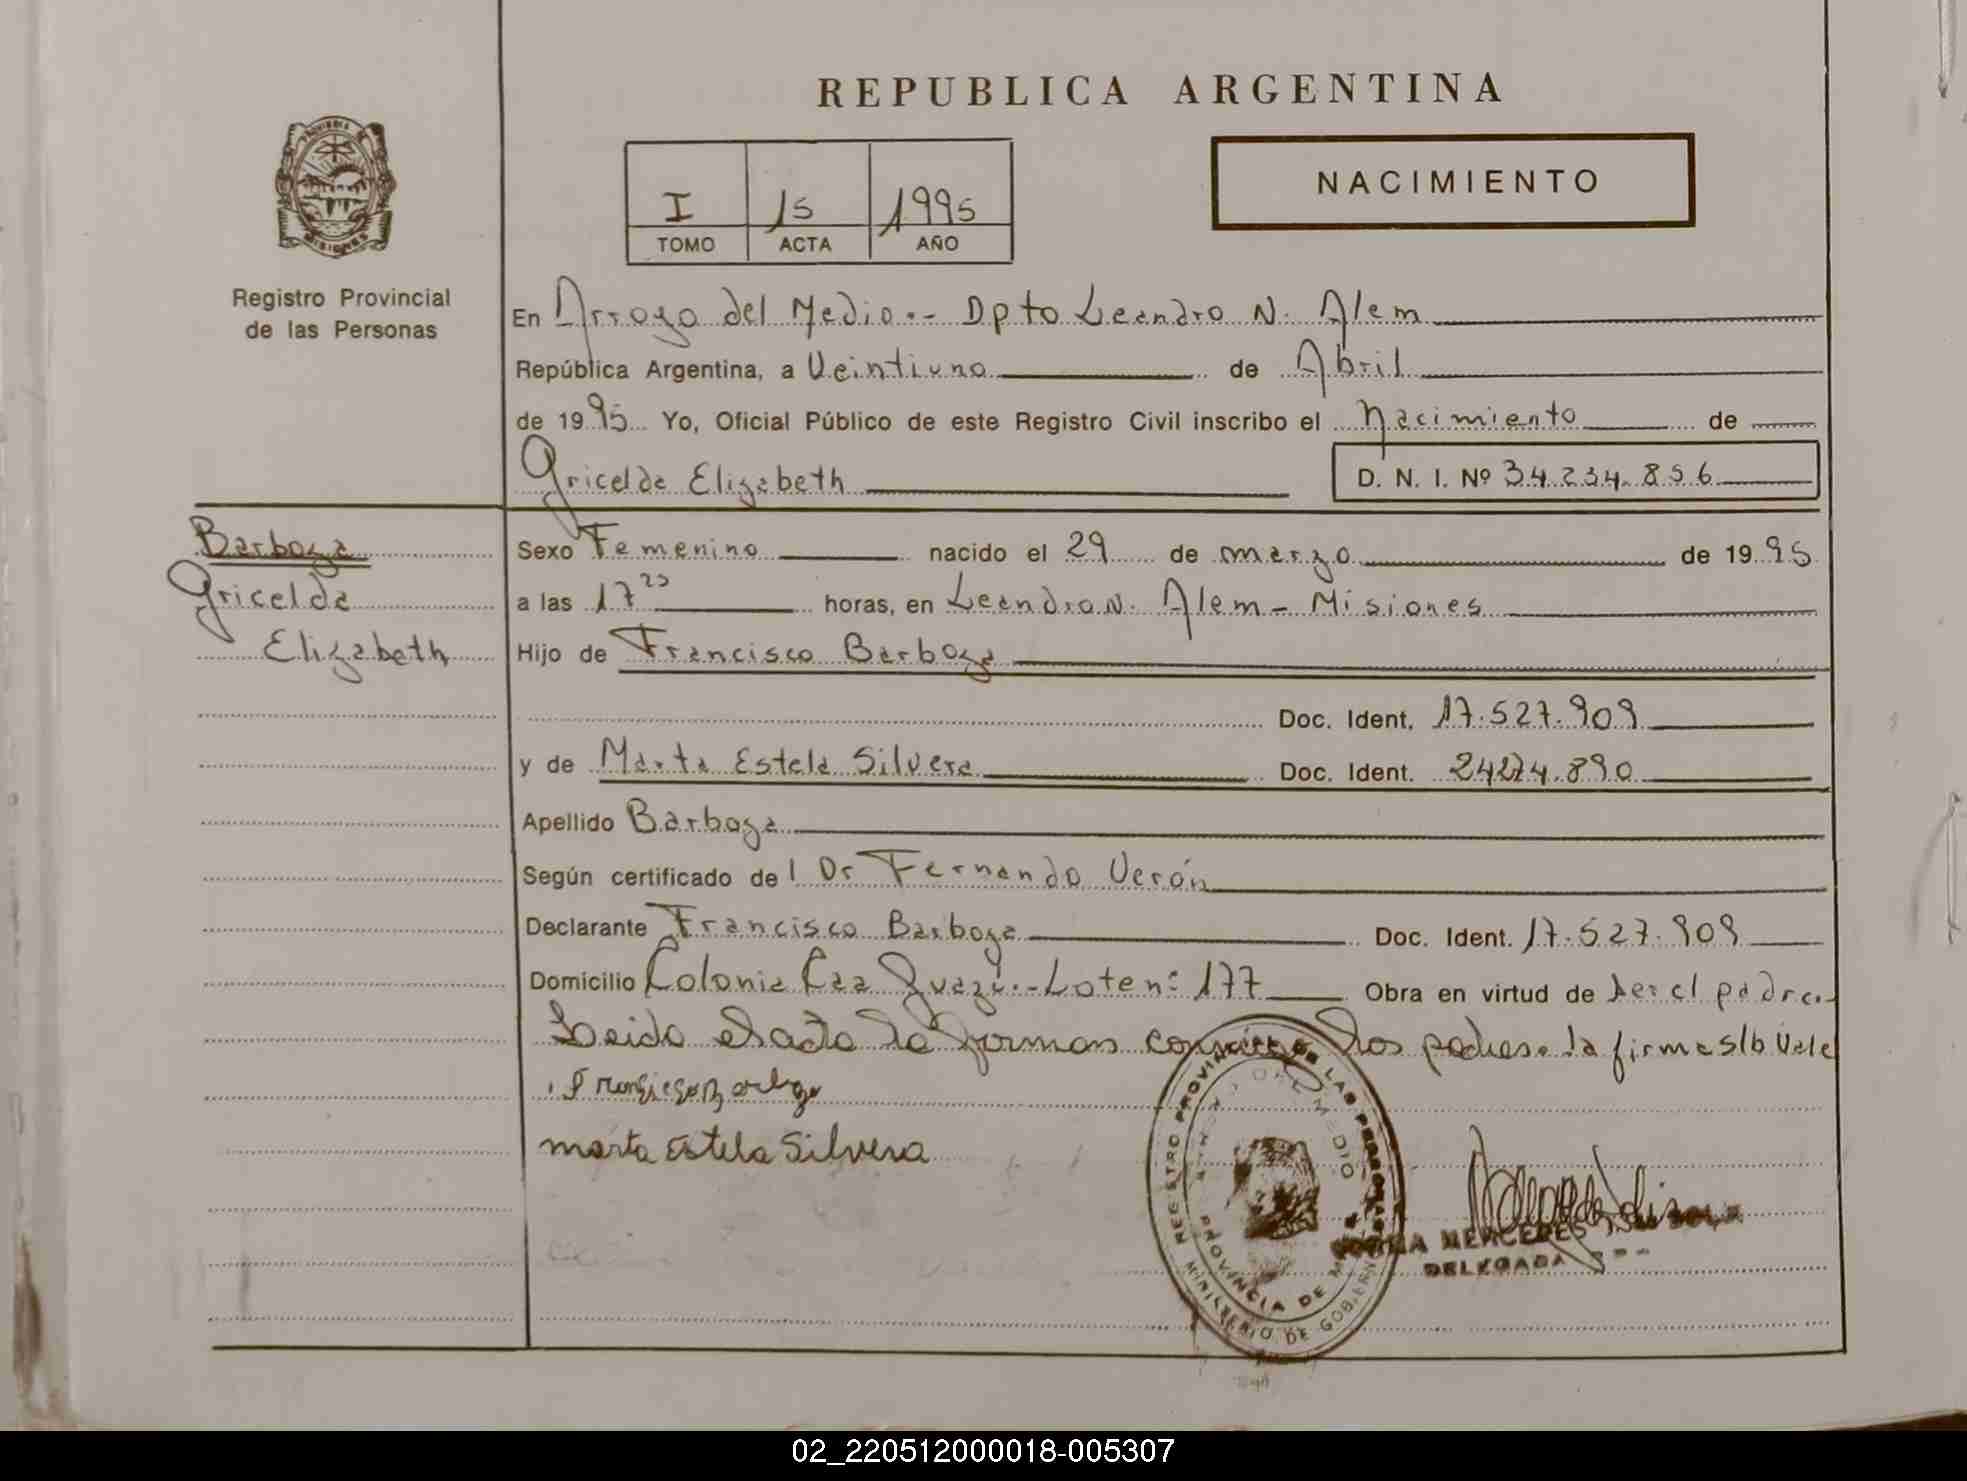 REPUBLICA ARGENTINA
NACIMIENTO
I 15 1995
TOMO ACTA AÑO
Registro Provincial
de las Personas
En Arroyo del Medio.- Dpto Leandro N. Alem
República Argentina, a Veintiuno de Abril
de 1995 Yo, Oficial Público de este Registro Civil inscribo el Nacimiento de
Gricelda Elizabeth D. N. I. Nº 34.234.856
Barboza
Gricelda
Elizabeth
Sexo Femenino nacido el 29 de marzo de 1995
a las 17 horas, en Leandro N. Alem - Misiones
Hijo de Francisco Barboza
Doc. Ident. 17.527.909
y de Marta Estela Silvera Doc. Ident. 24274.890
Apellido Barboza
Según certificado del Dr Fernando Verón
Declarante Francisco Barboza Doc. Ident. 17.527.909
Domicilio Colonia Caa Guazú.- Lote nº 177 Obra en virtud de ser el padre.-
Leida el acta la firman los padres. la firma s/b Vale
marta Estela Silvera
REGISTRO PROVINCIAL DE LAS PERSONAS
ARROYO DEL MEDIO
PROVINCIA DE
MINISTERIO DE GOBIERNO
MERCEDES
DELEGADA
02_220512000018-005307